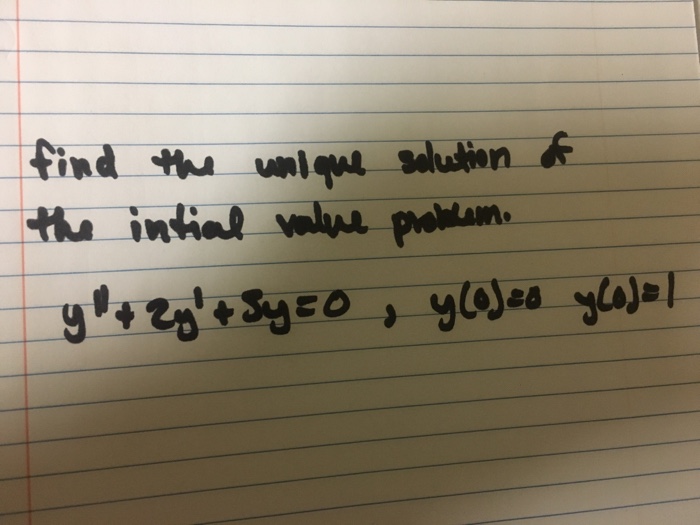 find the unique solution of
the intial value problem.
y"+2y'+5y=0 , y(0)=0 y(0)=1